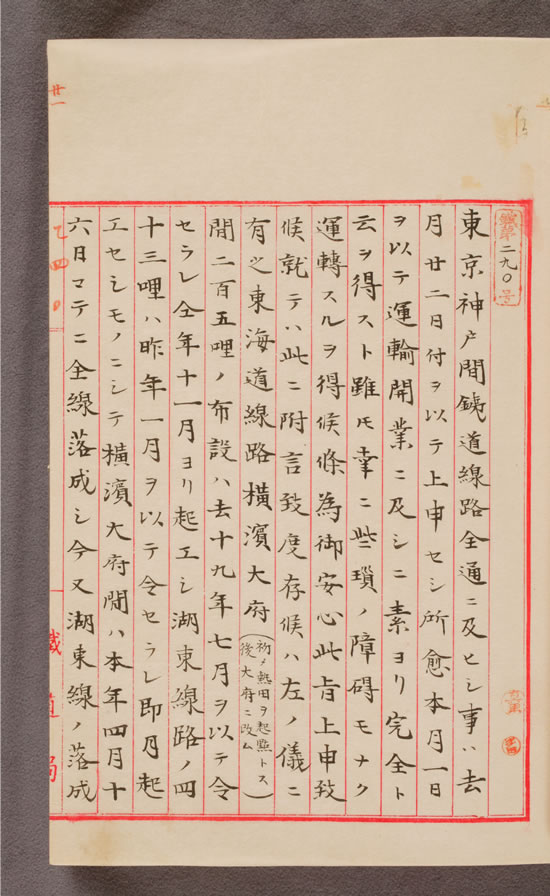 鐵第二九〇号
東京神戸間鉄道線路全通ニ及ヒシ事ハ去
月廿二日付ヲ以テ上申セシ所愈本月一日
ヲ以テ運輸開業ニ及シニ素ヨリ完全ト
云ヲ得スト雖モ幸ニ些瑣ノ障碍モナク
運轉スルヲ得候條為御安心此旨上申致
候就テハ此ニ附言致度存候ハ左ノ儀ニ
有之東海道線路横濱大府(初メ熱田ヲ起點トス
後大府ニ改ム)
間二百五哩ノ布設ハ去十九年七月ヲ以テ令
セラレ仝年十一月ヨリ起工シ湖東線路ノ四
十三哩ハ昨年一月ヲ以テ令セラレ即月起
工セシモノニシテ横濱大府間ハ本年四月十
六日マテニ全線落成シ今又湖東線ノ落成
鐵道局
廿一